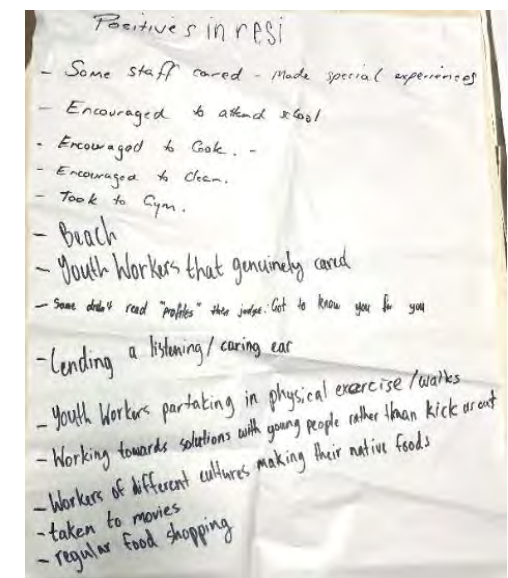 Positives in resi
- Some staff cared - Made special experiences
- Encouraged to attend school
- Encouraged to Cook. -
- Encouraged to Clean.
- Took to Gym.
- Beach
- Youth Workers that genuinely cared
- Some didn't read "profiles" then judge. Got to know you for you
- Lending a listening/caring ear
- Youth Workers partaking in physical exercise/walks
- Working towards solutions with young people rather than kick us out
- Workers of different cultures making their native foods
- taken to movies
- regular food shopping